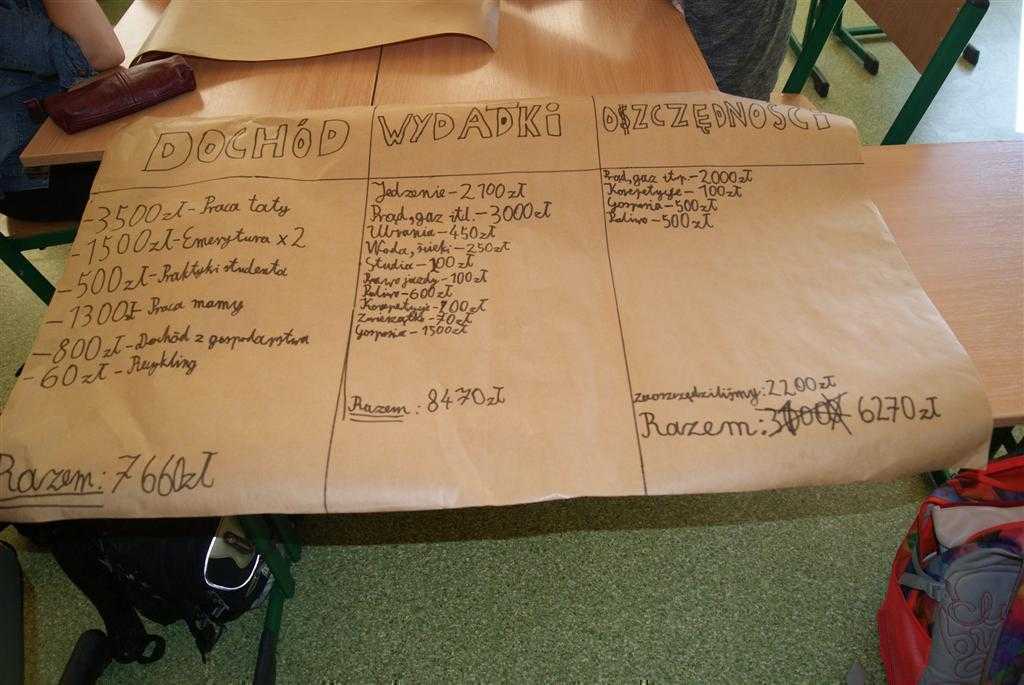 DOCHÓD
-3500zł - Praca taty
-1500zł - Emerytura x 2
-500zł - Praktyki studenta
-1300zł Praca mamy
-800zł - Dochód z gospodarstwa
-60zł - Recykling
Razem: 7660zł
WYDATKI
Jedzenie - 2100zł
Prąd, gaz itd. - 3000zł
Ubrania - 450zł
Woda, ścieki - 250zł
Studia - 100zł
Prawo jazdy - 100zł
Paliwo - 600zł
Korepetycje - 200zł
Zwierzątko - 70zł
Gosposia - 1500zł
Razem: 8470zł
OSZCZĘDNOŚCI
Prąd, gaz itp. - 2000zł
Korepetycje - 100zł
Gosposia - 500zł
Paliwo - 500zł
zaoszczędziliśmy: 2200zł
Razem: 6270zł